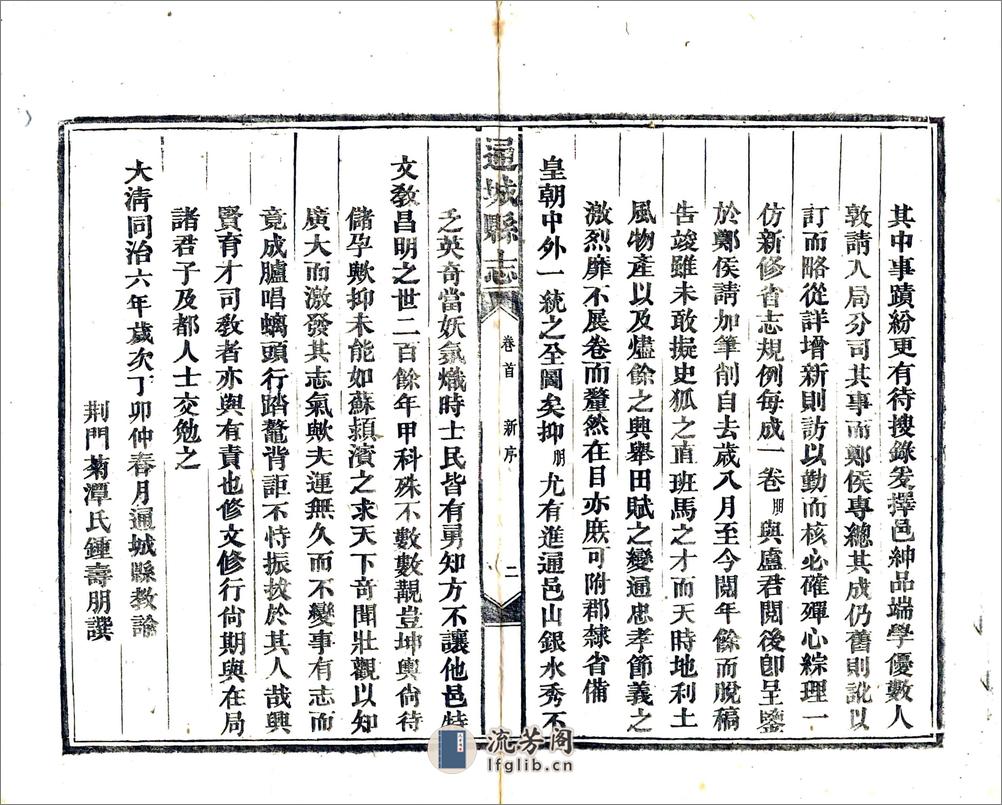 其中事蹟紛更有待搜錄爰擇邑紳品端學優數人
敦請入局分司其事而鄭侯專總其成仍舊則訛以
訂而略從詳增新則訪以勤而核必確殫心綜理一
仿新修省志規例每成一卷朋與盧君閱後卽呈鑒
於鄭侯請加筆削自去歲八月至今閱年餘而脫稿
告竣雖未敢擬史狐之直班馬之才而天時地利土
風物產以及燼餘之興舉田賦之變通忠孝節義之
激烈靡不展卷而釐然在目亦庶可附郡隸省備
皇朝中外一統之至圖矣抑朋尤有進通邑山銀水秀不
通城縣志
卷首
新序
二
乏英奇當妖氛熾時士民皆有勇知方不讓他邑特
文敎昌明之世二百餘年甲科殊不數數觀豈坤輿尙待
儲孕歟抑未能如蘇潁濱之求天下奇聞壯觀以知
廣大而激發其志氣歟夫運無久而不變事有志而
竟成臚唱螭頭行踏鼇背詎不恃振拔於其人哉興
賢育才司敎者亦與有責也修文修行尙期與在局
諸君子及都人士交勉之
大清同治六年歲次丁卯仲春月通城縣敎諭
荆門菊潭氏鍾壽朋譔
流芳阁
lfglib.cn